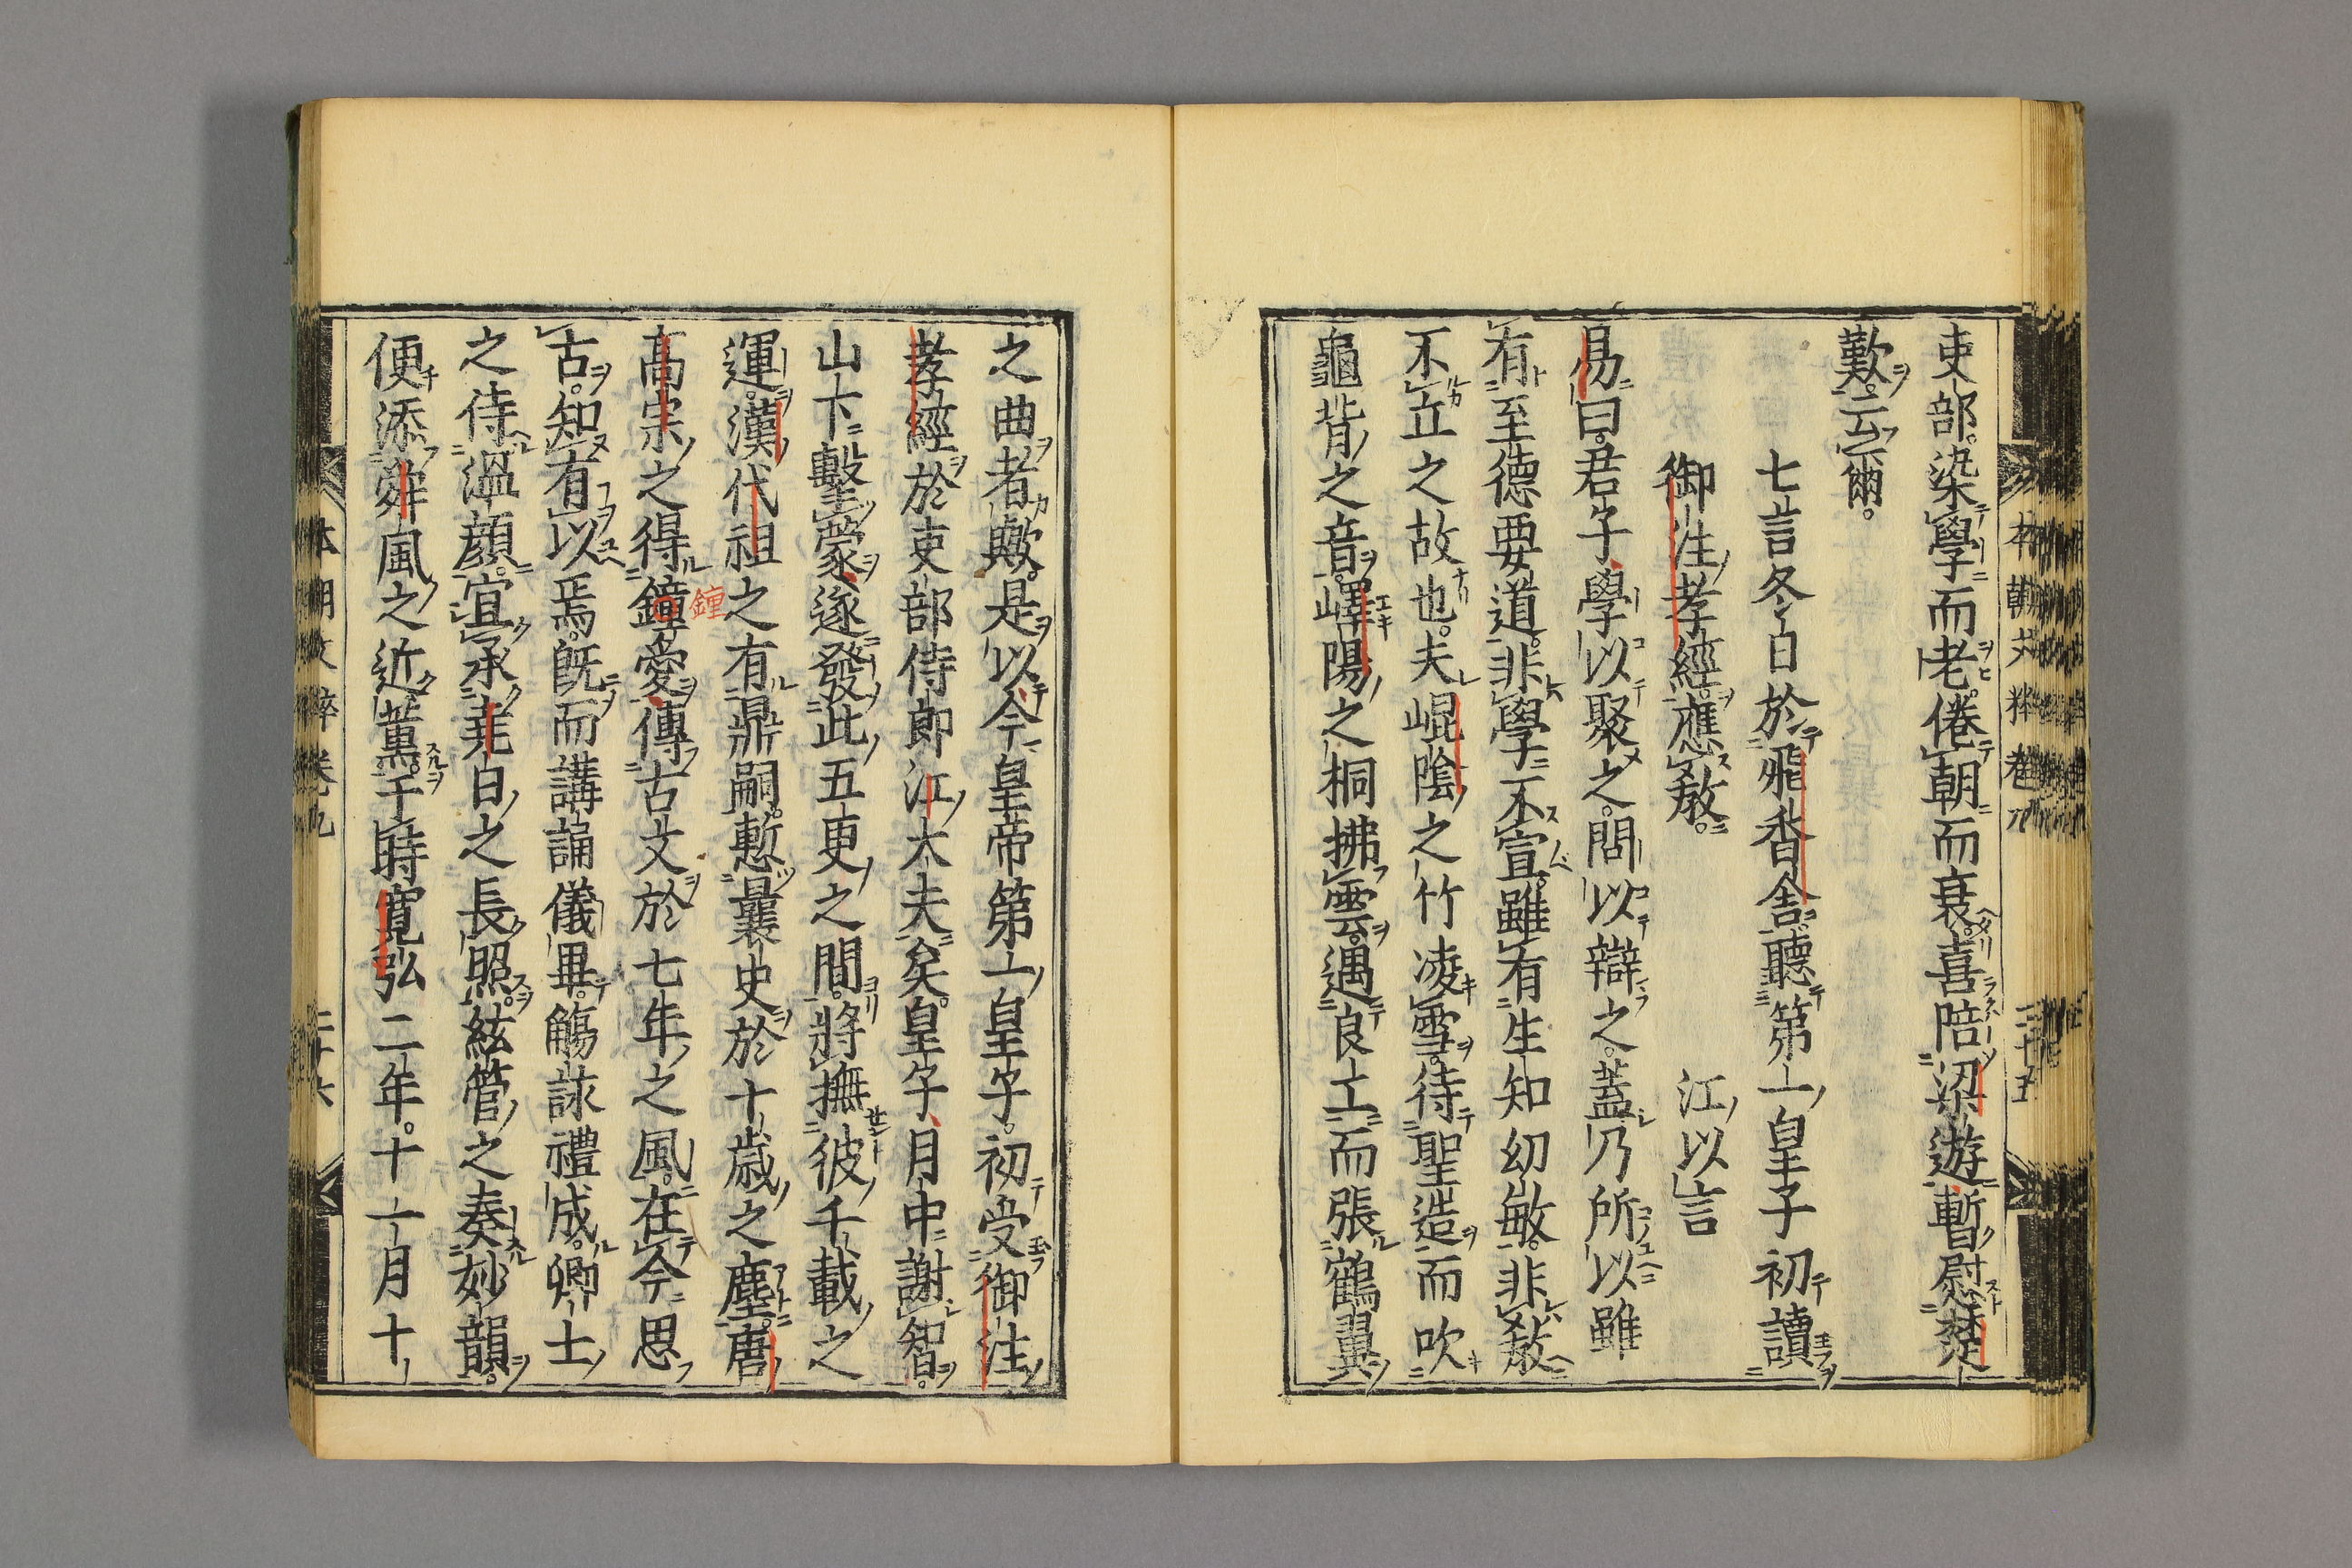 吏部。染學而老。倦朝而衰。喜陪梁遊。暫慰楚
歎。云爾。
七言冬日於飛香舍。聽第一皇子初讀
御注孝經。應教。
江以言
易曰。君子學以聚之。問以辯之。蓋乃所以雖
有至德要道。非學不宣。雖有生知幼敏。非教
不立之故也。夫崐陰之竹凌雪。待聖造而吹
龜背之音。嶧陽之桐拂雲。遇良工而張鶴翼
之曲者歟。是以今皇帝第一皇子。初受御注
孝經於吏部侍郎江大夫矣。皇子月中謝智。
山下擊蒙。遂發此五更之間。將撫彼千載之
運。漢代祖之有鼎嗣。慙曩史於十歲之塵。唐
高宗之得鐘愛。傳古文於七年之風。在今思
鍾
古。知有以焉。既而講誦儀畢。觴詠禮成。卿士
之侍溫顏。宜承堯日之長照。絃管之奏妙韻。
便添舜風之近薰。于時寬弘二年。十一月十
本朝文粹卷九
二十五
本朝文粹卷九
二十六